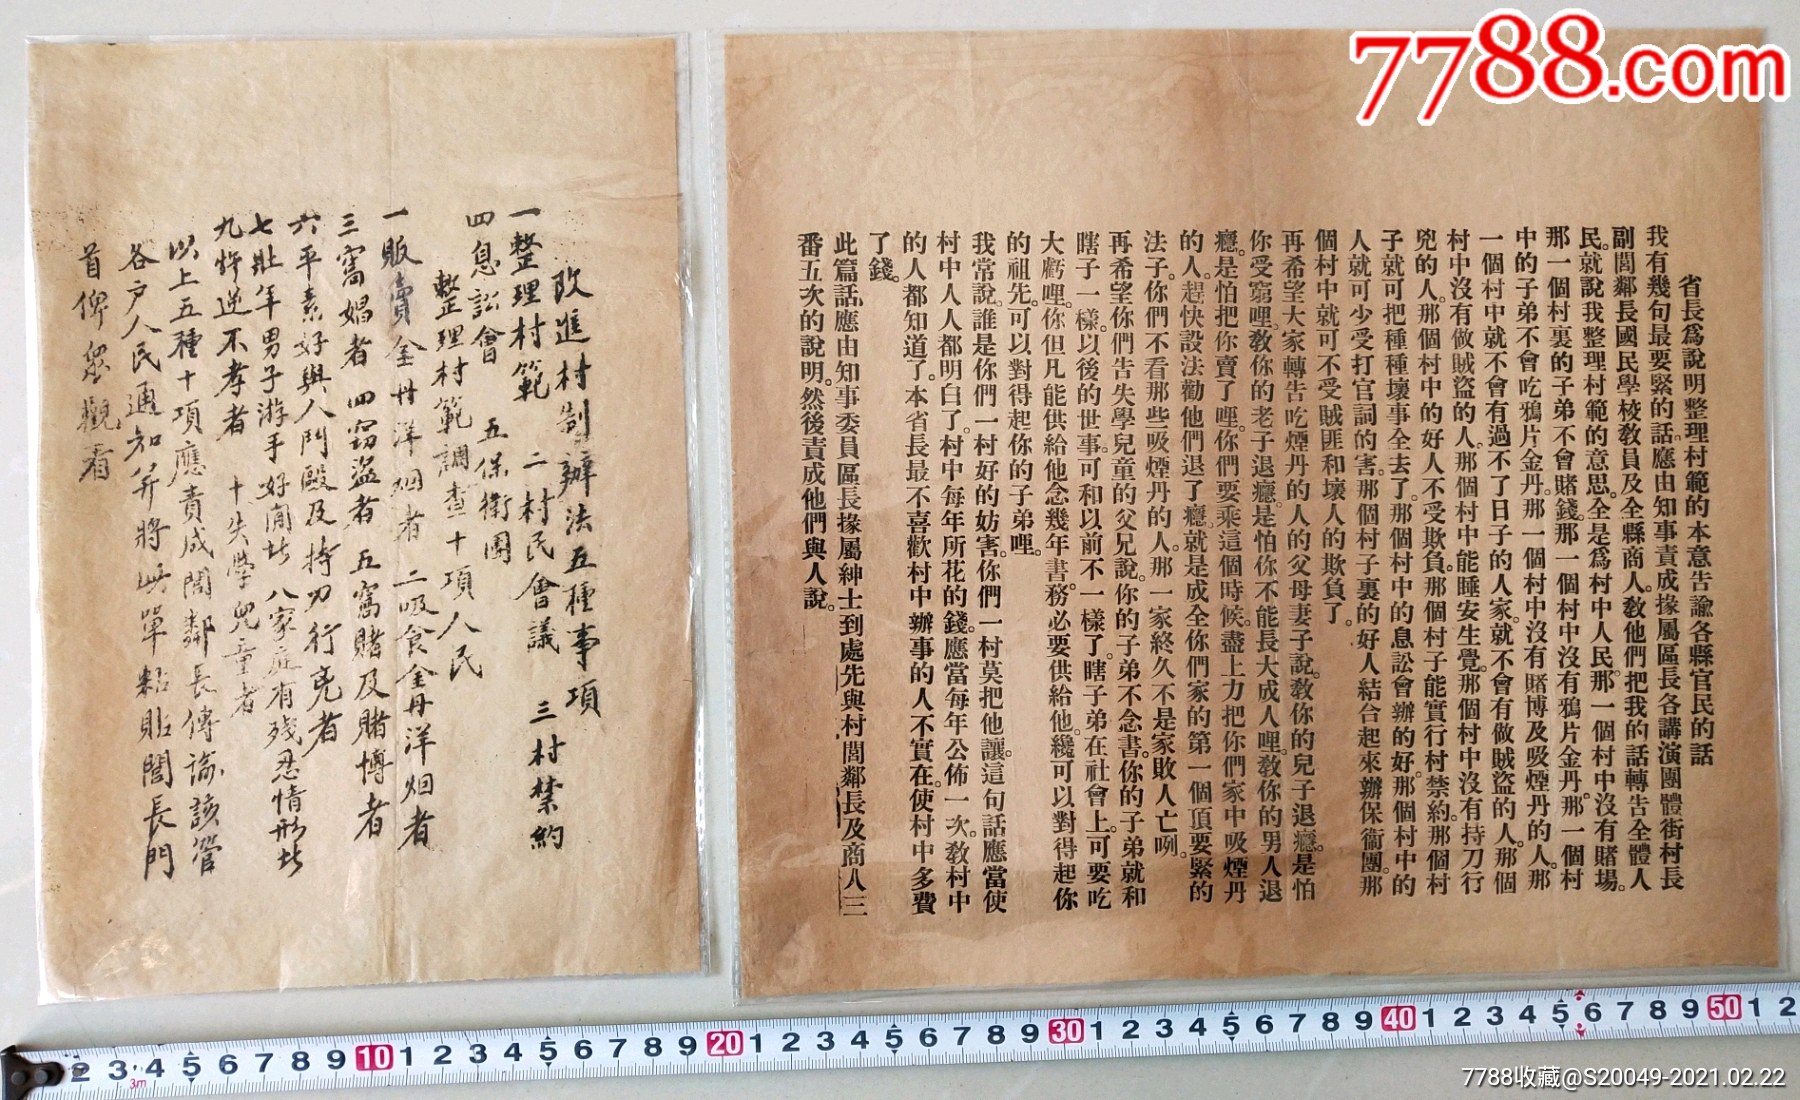 7788.com
省長爲說明整理村範的本意告諭各縣官民的話
我有幾句最要緊的話。應由知事責成掾屬區長各講演團體街村長
副閭鄰長國民學校敎員及全縣商人。敎他們把我的話轉告全體人
民。就說我整理村範的意思。全是爲村中人民。那一個村中沒有賭場。
那一個村裏的子弟不會賭錢。那一個村中沒有鴉片金丹。那一個村
中的子弟不會吃鴉片金丹。那一個村中沒有賭博及吸煙丹的人。那
一個村中就不會有過不了日子的人家。就不會有做賊盜的人。那個
村中沒有做賊盜的人。那個村中能睡安生覺。那個村中沒有持刀行
兇的人。那個村中的好人不受欺負。那個村子能實行村禁約。那個村
子就可把種種壞事全去了。那個村中的息訟會辦的好。那個村中的
人就可少受打官詞的害。那個村子裏的好人結合起來辦保衞團。那
個村中就可不受賊匪和壞人的欺負了。
再希望大家轉告吃煙丹的人的父母妻子說。敎你的兒子退癮。是怕
你受窮哩。敎你的老子退癮。是怕你不能長大成人哩。敎你的男人退
癮。是怕把你賣了哩。你們要乘這個時候。盡上力把你們家中吸煙丹
的人。趕快設法勸他們退了癮。就是成全你們家的第一個頂要緊的
法子。你們不看那些吸煙丹的人。那一家終久不是家敗人亡咧。
再希望你們告失學兒童的父兄說。你的子弟不念書。你的子弟就和
瞎子一樣。以後的世事。可和以前不一樣了。瞎子弟在社會上。可要吃
大虧哩。你但凡能供給他念幾年書。務必要供給他。纔可以對得起你
的祖先。可以對得起你的子弟哩。
我常說。誰是你們一村好的妨害。你們一村莫把他讓。這句話應當使
村中人人都明白了。村中每年所花的錢。應當每年公佈一次。敎村中
的人都知道了。本省長最不喜歡村中辦事的人不實在。使村中多費
了錢。
此篇話。應由知事委員區長掾屬紳士到處先與村閭鄰長及商人三
番五次的說明。然後責成他們與人說。
改進村制辦法五種事項
一整理村範 二村民會議 三村禁約
四息訟會 五保衛團
整理村範調查十項人民
一販賣金丹洋烟者 二吸食金丹洋烟者
三窩娼者 四窃盜者 五窩賭及賭博者
六平素好與人鬥毆及持刀行兇者
七壯年男子游手好閒者 八家庭有殘忍情形者
九忤逆不孝者 十失學兒童者
以上五種十項應責成閭鄰長傳諭該管
各戶人民通知並將此單粘貼閭長門
首俾眾觀看
2 3 4 5 6 7 8 9 10 1 2 3 4 5 6 7 8 9 20 1 2 3 4 5 6 7 8 9 30 1 2 3 4 5 6 7 8 9 40 1 2 3 4 5 6 7 8 9 50 1 2
3m
7788收藏@S20049-2021.02.22